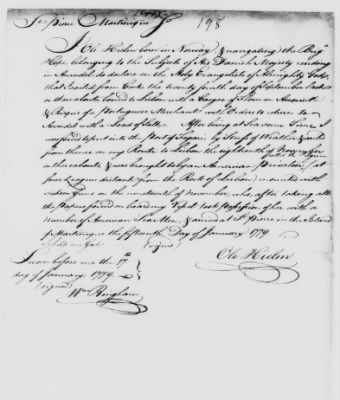 St Pierre Martinique
198
I Ole Hielm born in Norway & navigating the Brig
Hope belonging to the Subjects of His Danish Majesty residing
in Arundel do declare on the Holy Evangelists of Almighty God
that I sailed from Cork the twenty fourth day of September last
on the Account
to Lisbon with a Cargoe of on Account
& Risque of a Portuguese Merchant with Orders to return to
Arundel with a Load of Salt. After being at Sea some Time I
was forced to put into the Port of by Stress of Weather &
from thence on my Route to Lisbon the eighteenth of November
was brought to by an American Privateer (at
four Leagues distance from the Rock of Lisbon) mounted with
Guns on the nineteenth of November who, after taking all
the Papers found on board my Vessel took Possession of her with a
Number of American Sea Men & arrived at St Pierre in the Island
of Martinique the fifteenth Day of January 1779
(signed)
Ole Hielm
Sworn before me the 17th
day of January 1779
(signed)
Wm Bingham